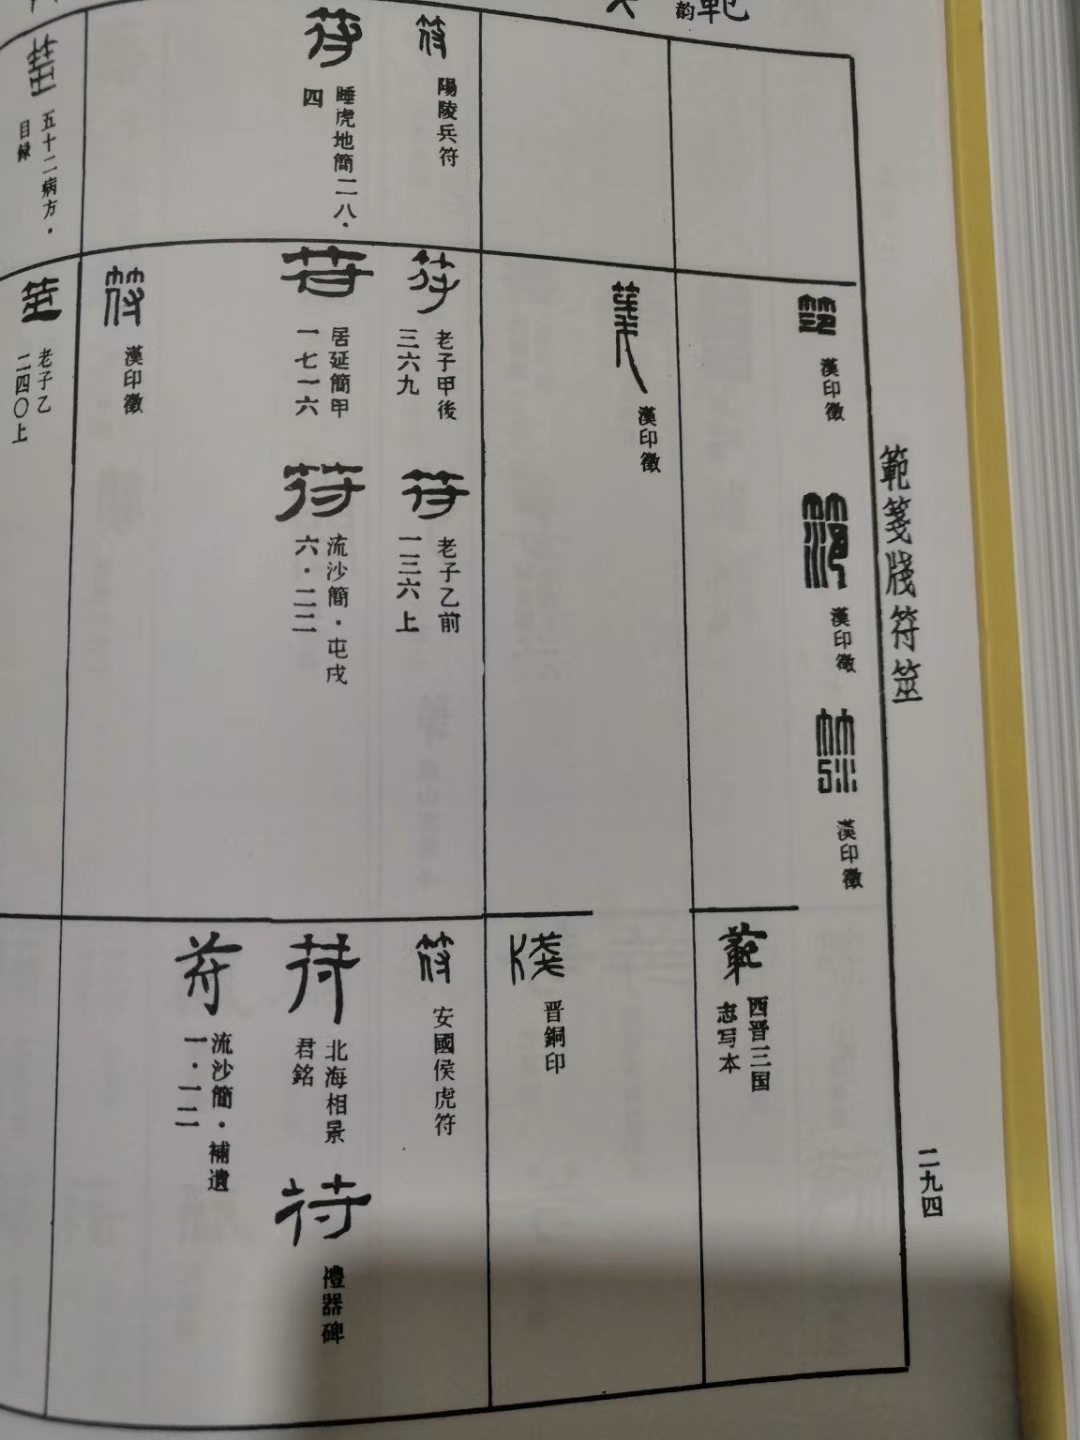 範
韵
範箋牋符筮
二九四
漢印徵
漢印徵
漢印徵
範
西晋三国
志写本
漢印徵
牋
晋銅印
符
陽陵兵符
符
睡虎地簡二八·
四
符
老子甲後
三六九
符
老子乙前
一三六上
符
居延簡甲
一七一六
符
流沙簡·屯戍
六·二二
符
漢印徵
符
安國侯虎符
符
北海相景
君銘
符
禮器碑
符
流沙簡·補遺
一·一二
筮
五十二病方·
目録
筮
老子乙
二四〇上